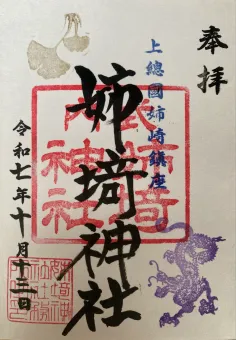 奉拝
上總國姉崎鎮座
姉埼神社
令和七年十月十三日
姉埼神社